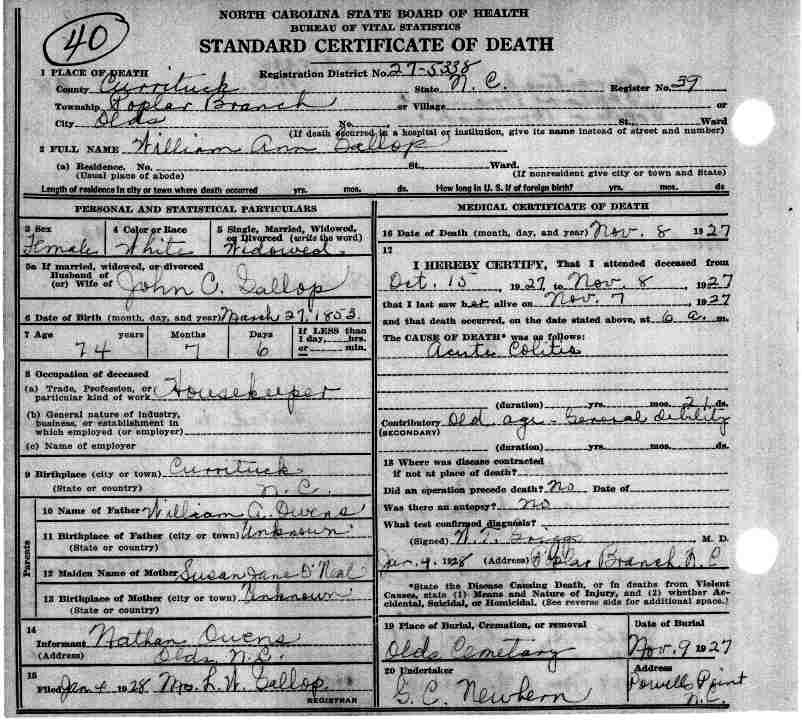 40
NORTH CAROLINA STATE BOARD OF HEALTH
BUREAU OF VITAL STATISTICS
STANDARD CERTIFICATE OF DEATH
1 PLACE OF DEATH Registration District No. 27-5338
County Currituck State N. C. Register No. 39
Township Poplar Branch or Village or
City Olds No. St. Ward
(If death occurred in a hospital or institution, give its name instead of street and number)
2 FULL NAME William Ann Gallop
(a) Residence. No. St. Ward.
(Usual place of abode) (If nonresident give city or town and State)
Length of residence in city or town where death occurred yrs. mos. ds. How long in U. S. if of foreign birth? yrs. mos. ds.
PERSONAL AND STATISTICAL PARTICULARS
3 Sex 4 Color or Race 5 Single, Married, Widowed,
or Divorced (write the word)
Female White Widowed
5a If married, widowed, or divorced
Husband of
(or) Wife of John C. Gallop
6 Date of Birth (month, day, and year) March 27, 1853
7 Age years Months Days If LESS than
1 day, hrs.
or min.
74 7 6
8 Occupation of deceased
(a) Trade, Profession, or
particular kind of work Housekeeper
(b) General nature of industry,
business, or establishment in
which employed (or employer)
(c) Name of employer
9 Birthplace (city or town) Currituck
(State or country) N.C.
Parents
10 Name of Father William A. Owens
11 Birthplace of Father (city or town) Unknown
(State or country)
12 Maiden Name of Mother Susan Jane O'Neal
13 Birthplace of Mother (city or town) Unknown
(State or country)
14
Informant Nathan Owens
(Address) Olds N.C.
15
Filed Jan 4 1928 Mrs L. W. Gallop
REGISTRAR
MEDICAL CERTIFICATE OF DEATH
16 Date of Death (month, day, and year) Nov. 8 1927
17
I HEREBY CERTIFY, That I attended deceased from
Oct. 15, 1927 to Nov. 8, 1927
that I last saw her alive on Nov. 7, 1927
and that death occurred, on the date stated above, at 6 a. m.
The CAUSE OF DEATH* was as follows:
Acute Colitis
(duration) yrs. mos. 21 ds.
Contributory Old age - General debility
(SECONDARY)
(duration) yrs. mos. ds.
18 Where was disease contracted
if not at place of death?
Did an operation precede death? No Date of
Was there an autopsy? No
What test confirmed diagnosis?
(Signed) W. T. Griggs M. D.
Jan. 4, 1928 (Address) Poplar Branch N C
*State the Disease Causing Death, or in deaths from Violent
Causes, state (1) Means and Nature of Injury, and (2) whether Ac-
cidental, Suicidal, or Homicidal. (See reverse side for additional space.)
19 Place of Burial, Cremation, or removal Date of Burial
Olds Cemetary Nov. 9 1927
20 Undertaker Address
G. C. Newbern Powells Point
N.C.